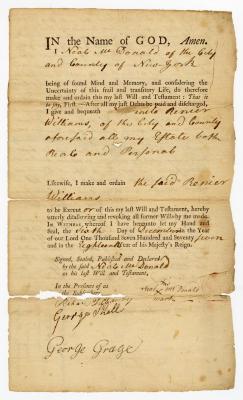 IN the Name of GOD, Amen.
I Neal Mc Donald of the City
and County of New-York
being of sound Mind and Memory, and considering the
Uncertainty of this frail and transitory Life, do therefore
make and ordain this my last Will and Testament: That is
to say, First.—After all my Debts be paid and discharged,
I give and bequeath unto Renier
Williams, of the City and County
aforesaid all my Estate both
Real and Personal
Likewise, I make and ordain the said Renier
Williams
to be Executor of this my last Will and Testament, hereby
utterly disallowing and revoking all former Wills by me made.
IN WITNESS, whereof I have hereunto set my Hand and
Seal, the Sixth Day of December in the Year
of our Lord One Thousand Seven Hundred and Seventy seven
and in the Eighteenth Year of his Majesty's Reign.
Signed, Sealed, Published and Declared
by the said Neal Mc Donald
as his last Will and Testament,
In the Presence of us
his
Neal Mc Donald
mark
George
George Grage